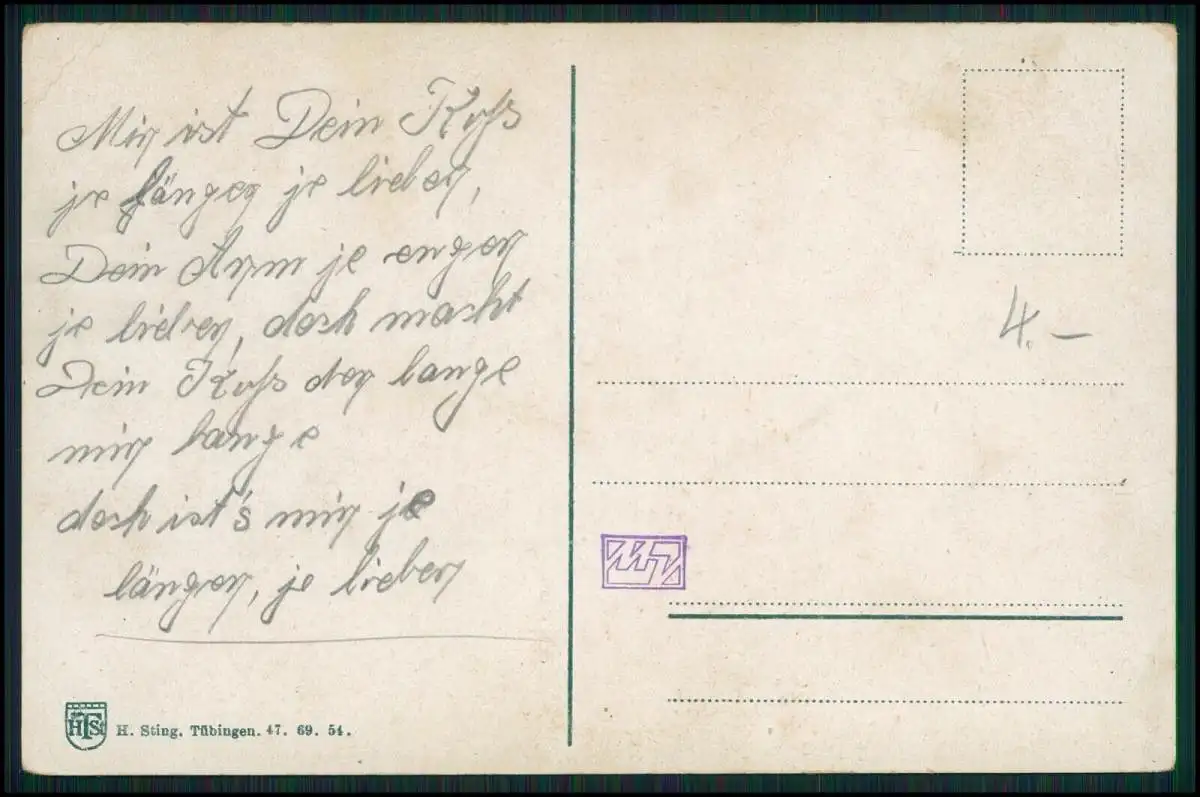 Mir ist Dein Kuss
je länger je lieber,
Dein Arm je enger
je lieber, doch macht
Dein Kuss der lange
mir bange
doch ist's mir je
länger, je lieber
4.-
HTSt H. Sting, Tübingen. 47. 69. 54.